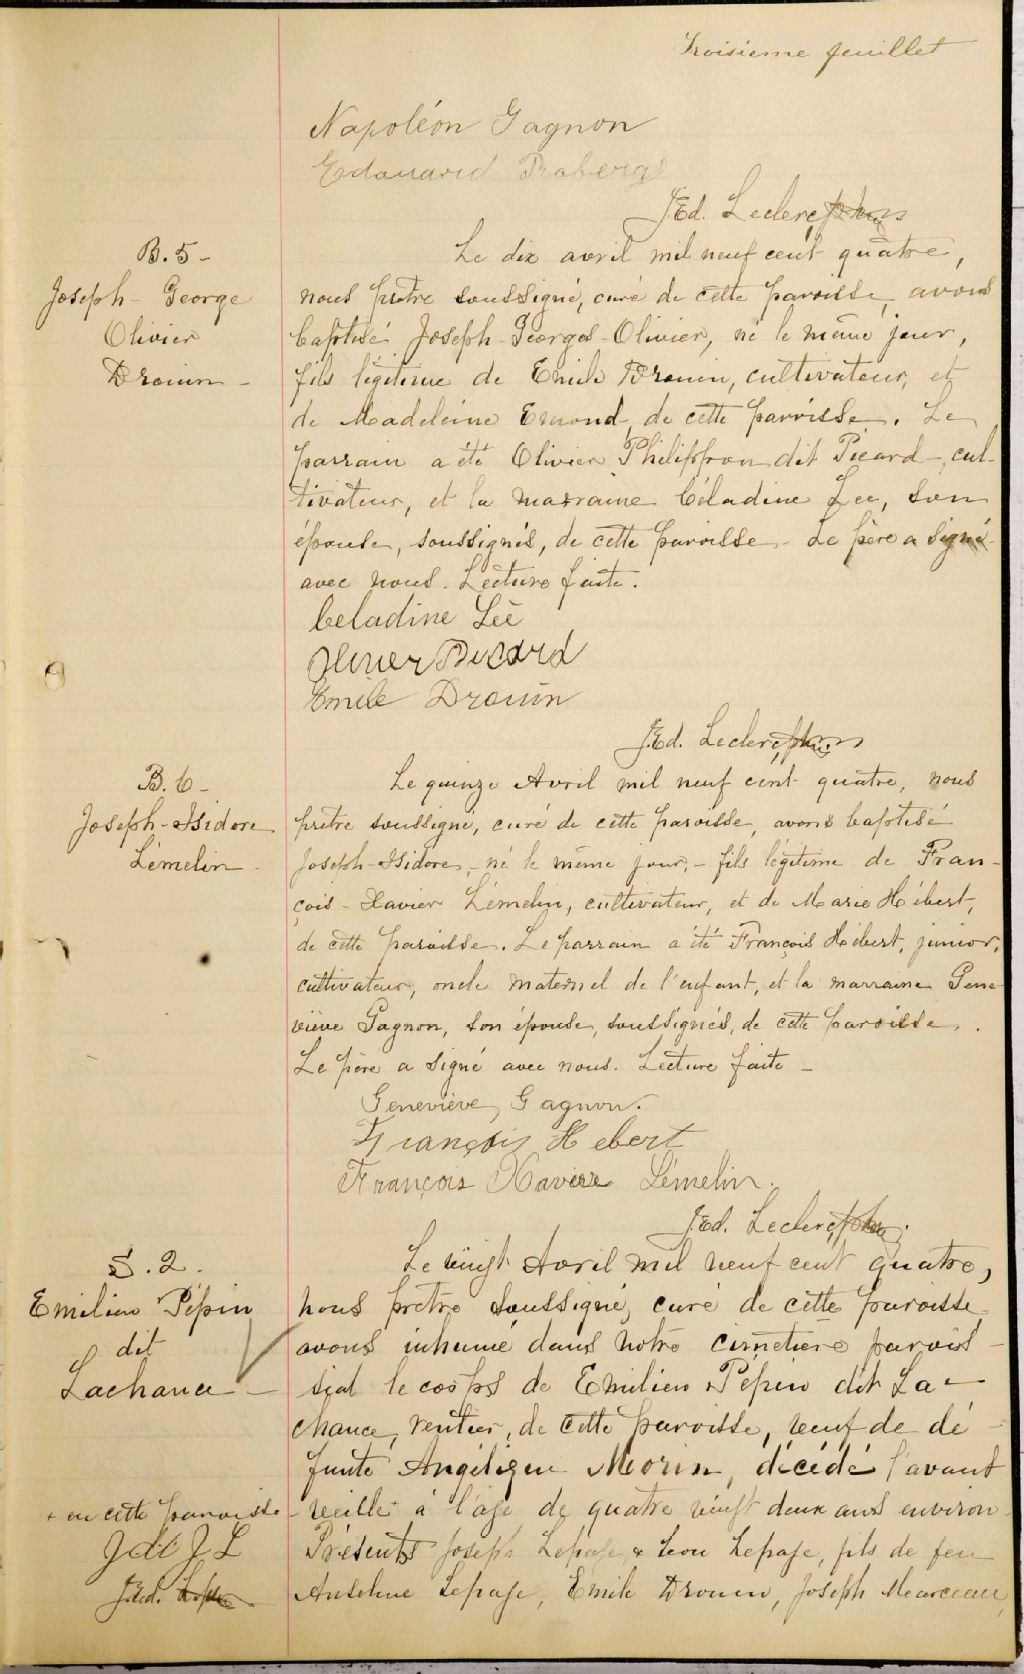 Troisieme feuillet
Napoléon Gagnon
Edouard Roberge
J.Ed. Leclerc, ptre
B. 5 -
Joseph - George
Olivier
Drouin -
Le dix avril mil neuf cent quatre,
nous prêtre soussigné, curé de cette paroisse, avons
baptisé Joseph - Georges - Olivier, né le même jour,
fils légitime de Emile Drouin, cultivateur, et
de Madeleine Emond, de cette paroisse. Le
parrain a été Olivier Philippon dit Picard -, cul-
tivateur, et la marraine Céladine Lee, son
épouse, soussignés, de cette paroisse - Le père a signé
avec nous. Lecture faite.
Celadine Lee
Olivier Picard
Emile Drouin
J.Ed. Leclerc, ptre
B. 6 -
Joseph - Isidore
Lémelin -
Le quinze Avril mil neuf cent quatre, nous
prêtre soussigné, curé de cette paroisse, avons baptisé
Joseph - Isidore, - né le même jour, - fils légitime de Fran -
çois - Xavier Lémelin, cultivateur, et de Marie Hébert,
de cette paroisse. Le parrain a été François Hébert, junior,
cultivateur, oncle maternel de l'enfant, et la marraine Gene
viève Gagnon, son épouse, soussignés, de cette paroisse.
Le père a signé avec nous. Lecture faite -
Geneviève Gagnon.
François Hebert
François Xavier Lémelin.
J.Ed. Leclerc, ptre
S. 2.
Emilien Pépin
dit
Lachance -
Le vingt Avril mil neuf cent quatre,
nous prêtre soussigné, curé de cette paroisse
avons inhumé dans notre cimetière parois -
sial le corps de Emilien Pépin dit La -
chance, rentier, de cette paroisse, veuf de dé -
funte Angélique Morin, décédé l'avant
- veille + à l'âge de quatre vingt deux ans environ
Présents Joseph Lepage & Léon Lepage, fils de feu
Anselme Lepage, Emile Drouin, Joseph Marceau,
+ en cette paroisse
J.Ed.